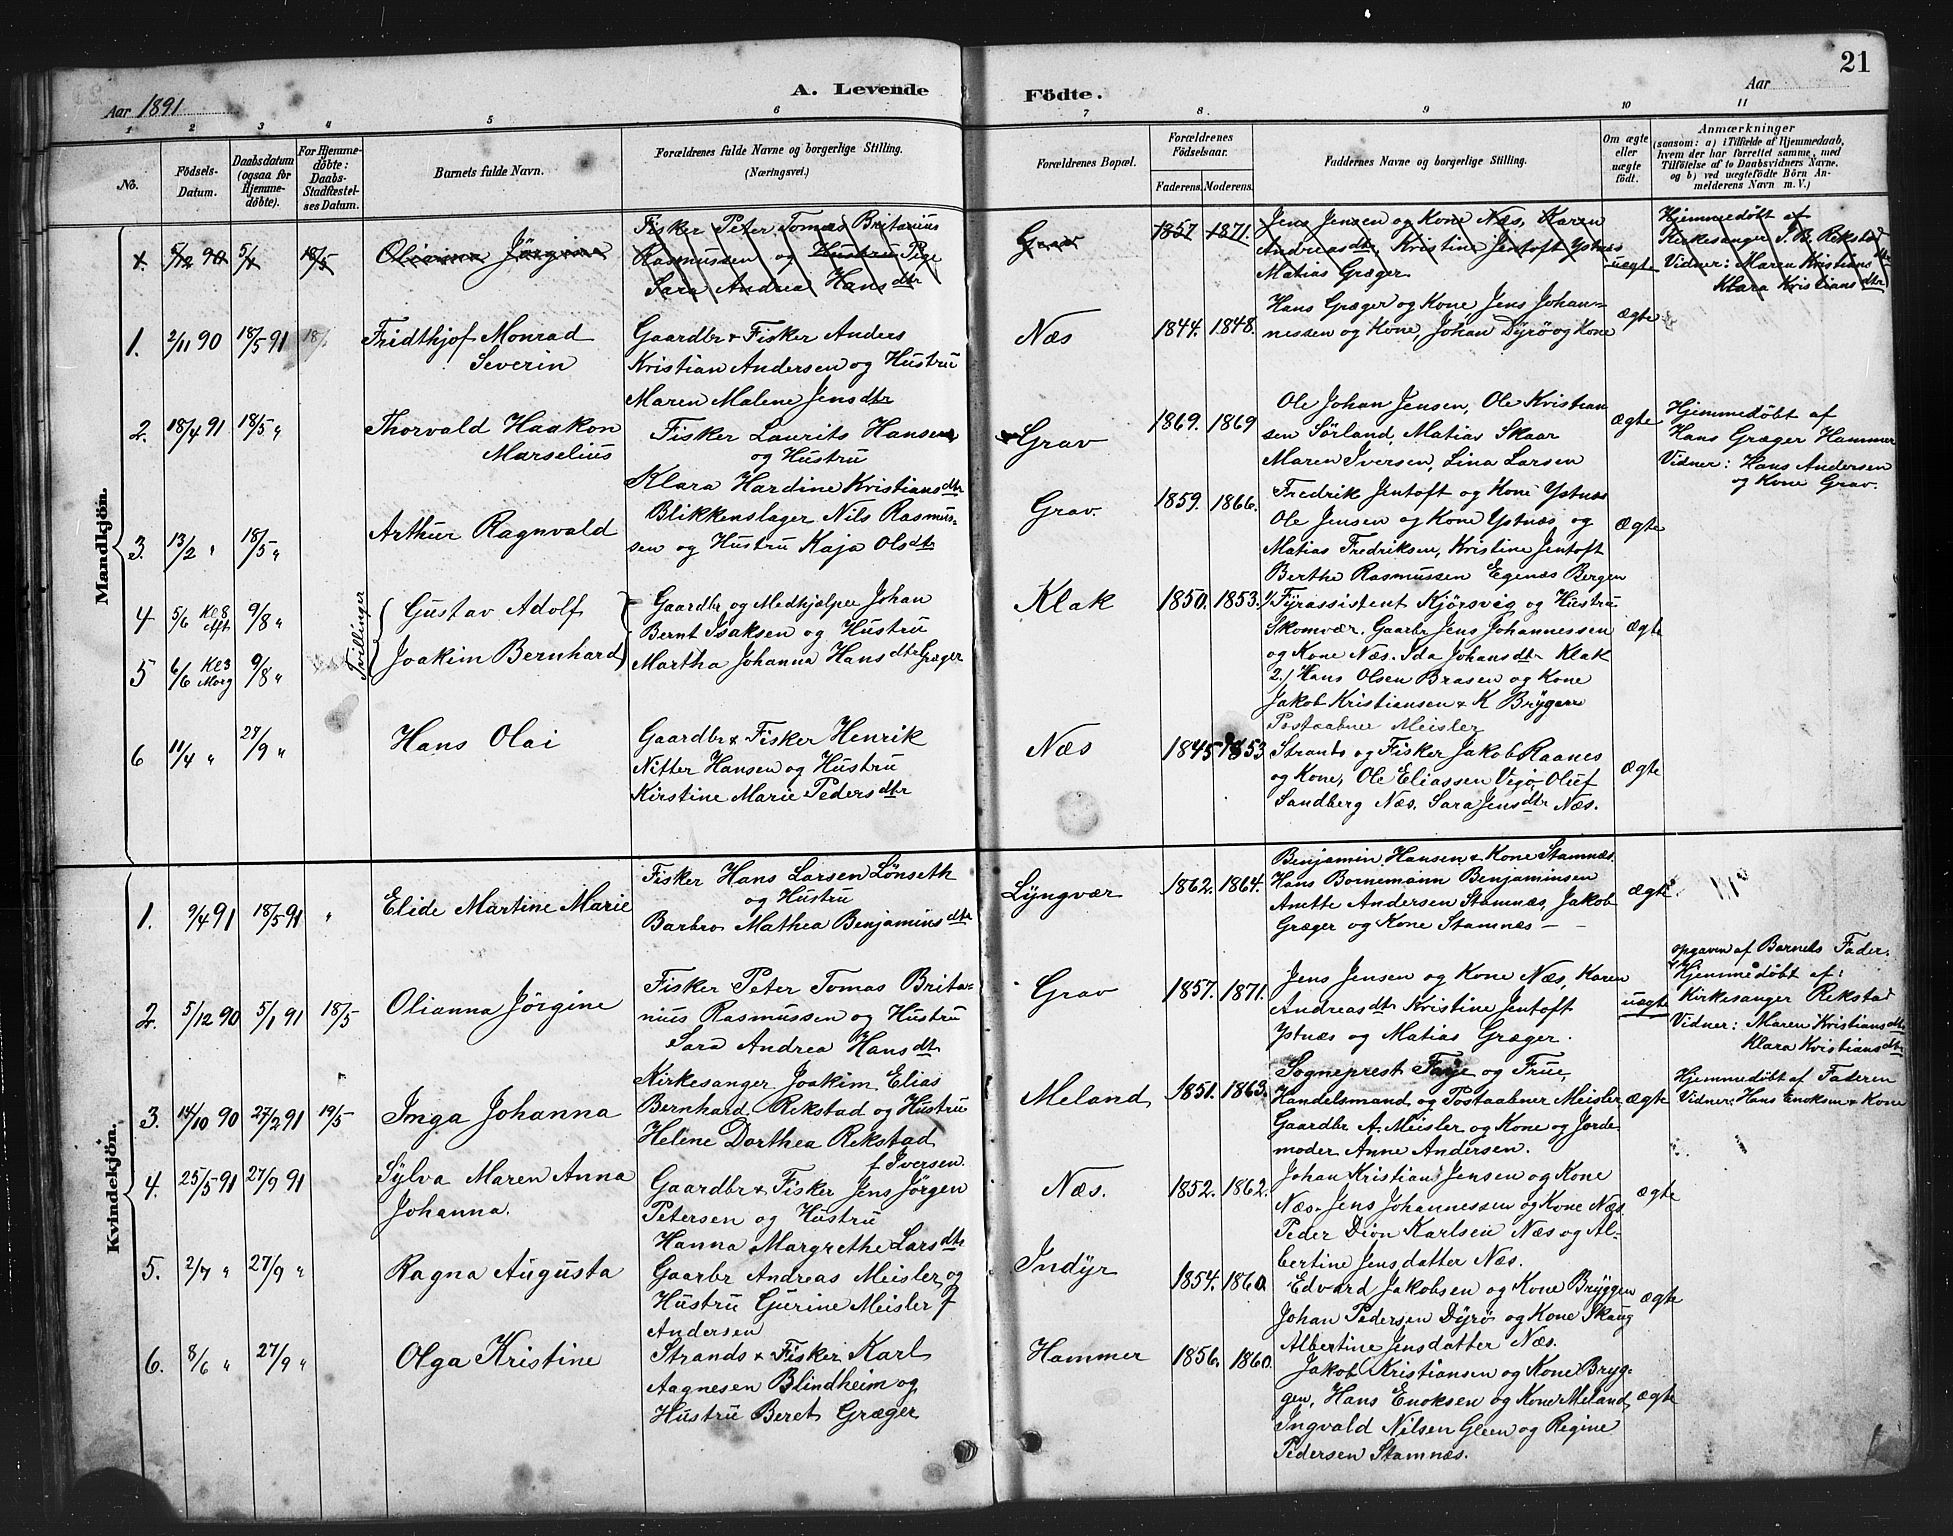 21
Aar 1891
A. Levende
Födte.
Aar
1 2 3 4 5 6 7 8. 9 10 11
No.
Födsels-
Datum.
Daabsdatum
(ogsaa for
Hjemme-
döbte).
For Hjemme-
döbte:
Daabs-
Stadfæstel-
ses Datum.
Barnets fulde Navn.
Forældrenes fulde Navne og borgerlige Stilling.
(Næringsvei.)
Forældrenes Bopæl.
Forældrenes
Födselsaar.
Faderens. Moderens.
Faddernes Navne og borgerlige Stilling.
Om ægte
eller
uægte
födt.
Anmærkninger
(saasom: a) i Tilfælde af Hjemmedaab,
hvem der har forrettet samme, med
Tilföielse af to Daabsvidners Navne.
og b) ved uægtefödte Börn An-
melderens Navn m. V.)
Mandkjön.
1. 5/12 90 5/1 18/5 Olianna Jörgine
Fisker Peter Tomas Britanius
Rasmussen og Hustru Pige
Sara Andrea Hansdtr
Grav 1857 1871.
Jens Jensen og Kone Næs, Karen
Andreasdtr, Kristine Jentoft Ystnæs
Matias Græger
uægte
Hjemmedøbt af
Kirkesanger J. B. Rekstad
Vidner: Maren Kristiansdtr
Klara Kristiansdtr
1. 2/11 90 18/5 91 18/5 Fridthjof Monrad
Severin
Gaardbr & Fisker Anders
Kristian Andersen og Hustru
Maren Malene Jensdtr
Næs 1844. 1848.
Hans Græger og Kone Jens Johan-
nessen og Kone, Johan Dÿrø og Kone
ægte
2. 18/4 91 18/5 " Thorvald Haakon
Marselius
Fisker Laurits Hansen
og Hustru
Klara Hardine Kristiansdtr
Grav 1869. 1869
Ole Johan Jensen, Ole Kristian
sen Sörland, Matias Skaar
Maren Iversen, Lina Larsen
ægte
Hjemmedøbt af
Hans Græger Hammer
Vidner: Hans Andersen
og Kone Grav.
3. 13/2 " 18/5 " Arthur Ragnvald
Blikkenslager Nils Rasmus-
sen og Hustru Kaja Olsdtr
Grav 1859. 1866.
Fredrik Jentoft og Kone Ystnæs
Ole Jensen og Kone Ystnæs og
Matias Fredriksen, Kristine Jentoft
Berthe Rasmussen Egenæs Bergen
ægte
Tvillinger
4 5/6 Kl 8 Aft 9/8 " Gustav Adolf
5 6/6 Kl 3 Morg 9/8 " Joakim Bernhard
Gaardbr og Medhjælper Johan
Bernt Isaksen og Hustru
Martha Johanna Hansdtr Græger
Klak 1850. 1853.
1/ Fÿrassistent Kjörsvig og Hustru
Skomvær. Gaarbr Jens Johannessen
og Kone Næs. Ida Johansdtr Klak
2./ Hans Olsen Brasen og Kone
Jakob Kristiansen & K Brÿggen
Postaabner Meisler
ægte
6 11/4 " 27/9 " Hans Olai
Gaardbr & Fisker Henrik
Nitter Hansen og Hustru
Kirstine Marie Pedersdtr
Næs 1845 1853
Strands og Fisker Jakob Raanes
og Kone, Ole Eliassen Vegø, Oluf
Sandberg Næs. Sara Jensdtr Næs.
ægte
Kvindekjön.
1. 9/4 91 18/5 91 " Elide Martine Marie
Fisker Hans Larsen Lönseth
og Hustru
Barbro Mathea Benjaminsdtr
Lÿngvær 1862. 1864.
Benjamin Hansen & Kone Stamnæs.
Hans Bornemann Benjaminsen
Anette Andersen Stamnæs, Jakob
Græger og Kone Stamnæs —
ægte
2. 5/12 90 5/1 91 18/5 Olianna Jörgine
Fisker Peter Tomas Brita-
nius Rasmussen og Hustru
Sara Andrea Hansdtr
Grav 1857. 1871.
Jens Jensen og Kone Næs, Karen
Andreasdtr Kristine Jentoft
Ystnæs og Matias Græger.
uægte
opgaven af Barnets Fader.
Hjemmedøbt af:
Kirkesanger Rekstad
Vidner: Maren Kristiansdtr
Klara Kristiansdtr
3. 14/10 90 27/2 91 19/5 Inga Johanna
Kirkesanger Joakim Elias
Bernhard Rekstad og Hustru
Helene Dorthea Rekstad
f Iversen.
Meland 1851. 1863.
Sogneprest Faye og Frue,
Handelsmand og Postaabner Meisler
Gaardbr A. Meisler og Kone og Jorde-
moder Anne Andersen.
ægte
Hjemmedøbt af Faderen
Vidner: Hans Enoksen & Kone
4. 25/5 91 27/9 91 Sÿlva Maren Anna
Johanna.
Gaardbr & Fisker Jens Jörgen
Petersen og Hustru
Hanna Margrethe Larsdtr
Næs. 1852. 1862.
Johan Kristian Jensen og Kone
Næs. Jens Johannessen og Kone Næs
Peder Dion Karlsen Næs og Al-
bertine Jensdatter Næs.
ægte
5. 2/7 " 27/9 " Ragna Augusta
Gaarbr Andreas Meisler og
Hustru Gurine Meisler f
Andersen
Indÿr 1854. 1860.
Edvard Jakobsen og Kone Brÿggen
Johan Pedersen Dÿrø og Kone Skaug
Albertine Jensdatter Næs.
ægte
6. 8/6 " 27/9 " Olga Kristine
Strands & Fisker Karl
Aagnesen Blindheim og
Hustru Beret Græger
Hammer 1856. 1860.
Jakob Kristiansen og Kone Bryg-
gen, Hans Enoksen og Kone Meland,
Ingvald Nilsen Gleen og Regine
Pedersen Stamnæs.
ægte